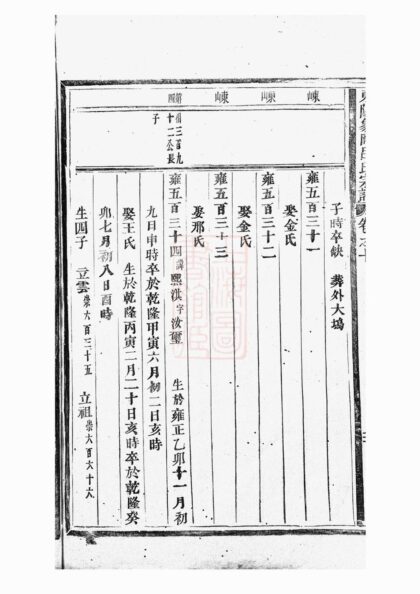 氏宗譜 卷之十
子時卒缺 葬外大塢
雍五百三十一
娶金氏
雍五百三十二
娶金氏
雍五百三十三
娶那氏
第四
三百九十二公長子
雍五百三十四 諱熙淇 字汝璽 生於雍正乙卯十一月初
九日申時卒於乾隆甲寅六月初二日亥時
娶王氏 生於乾隆丙寅二月二十日亥時卒於乾隆癸
卯七月初八日酉時
生四子 立雲崇六百三十五 立祖崇六百六十六